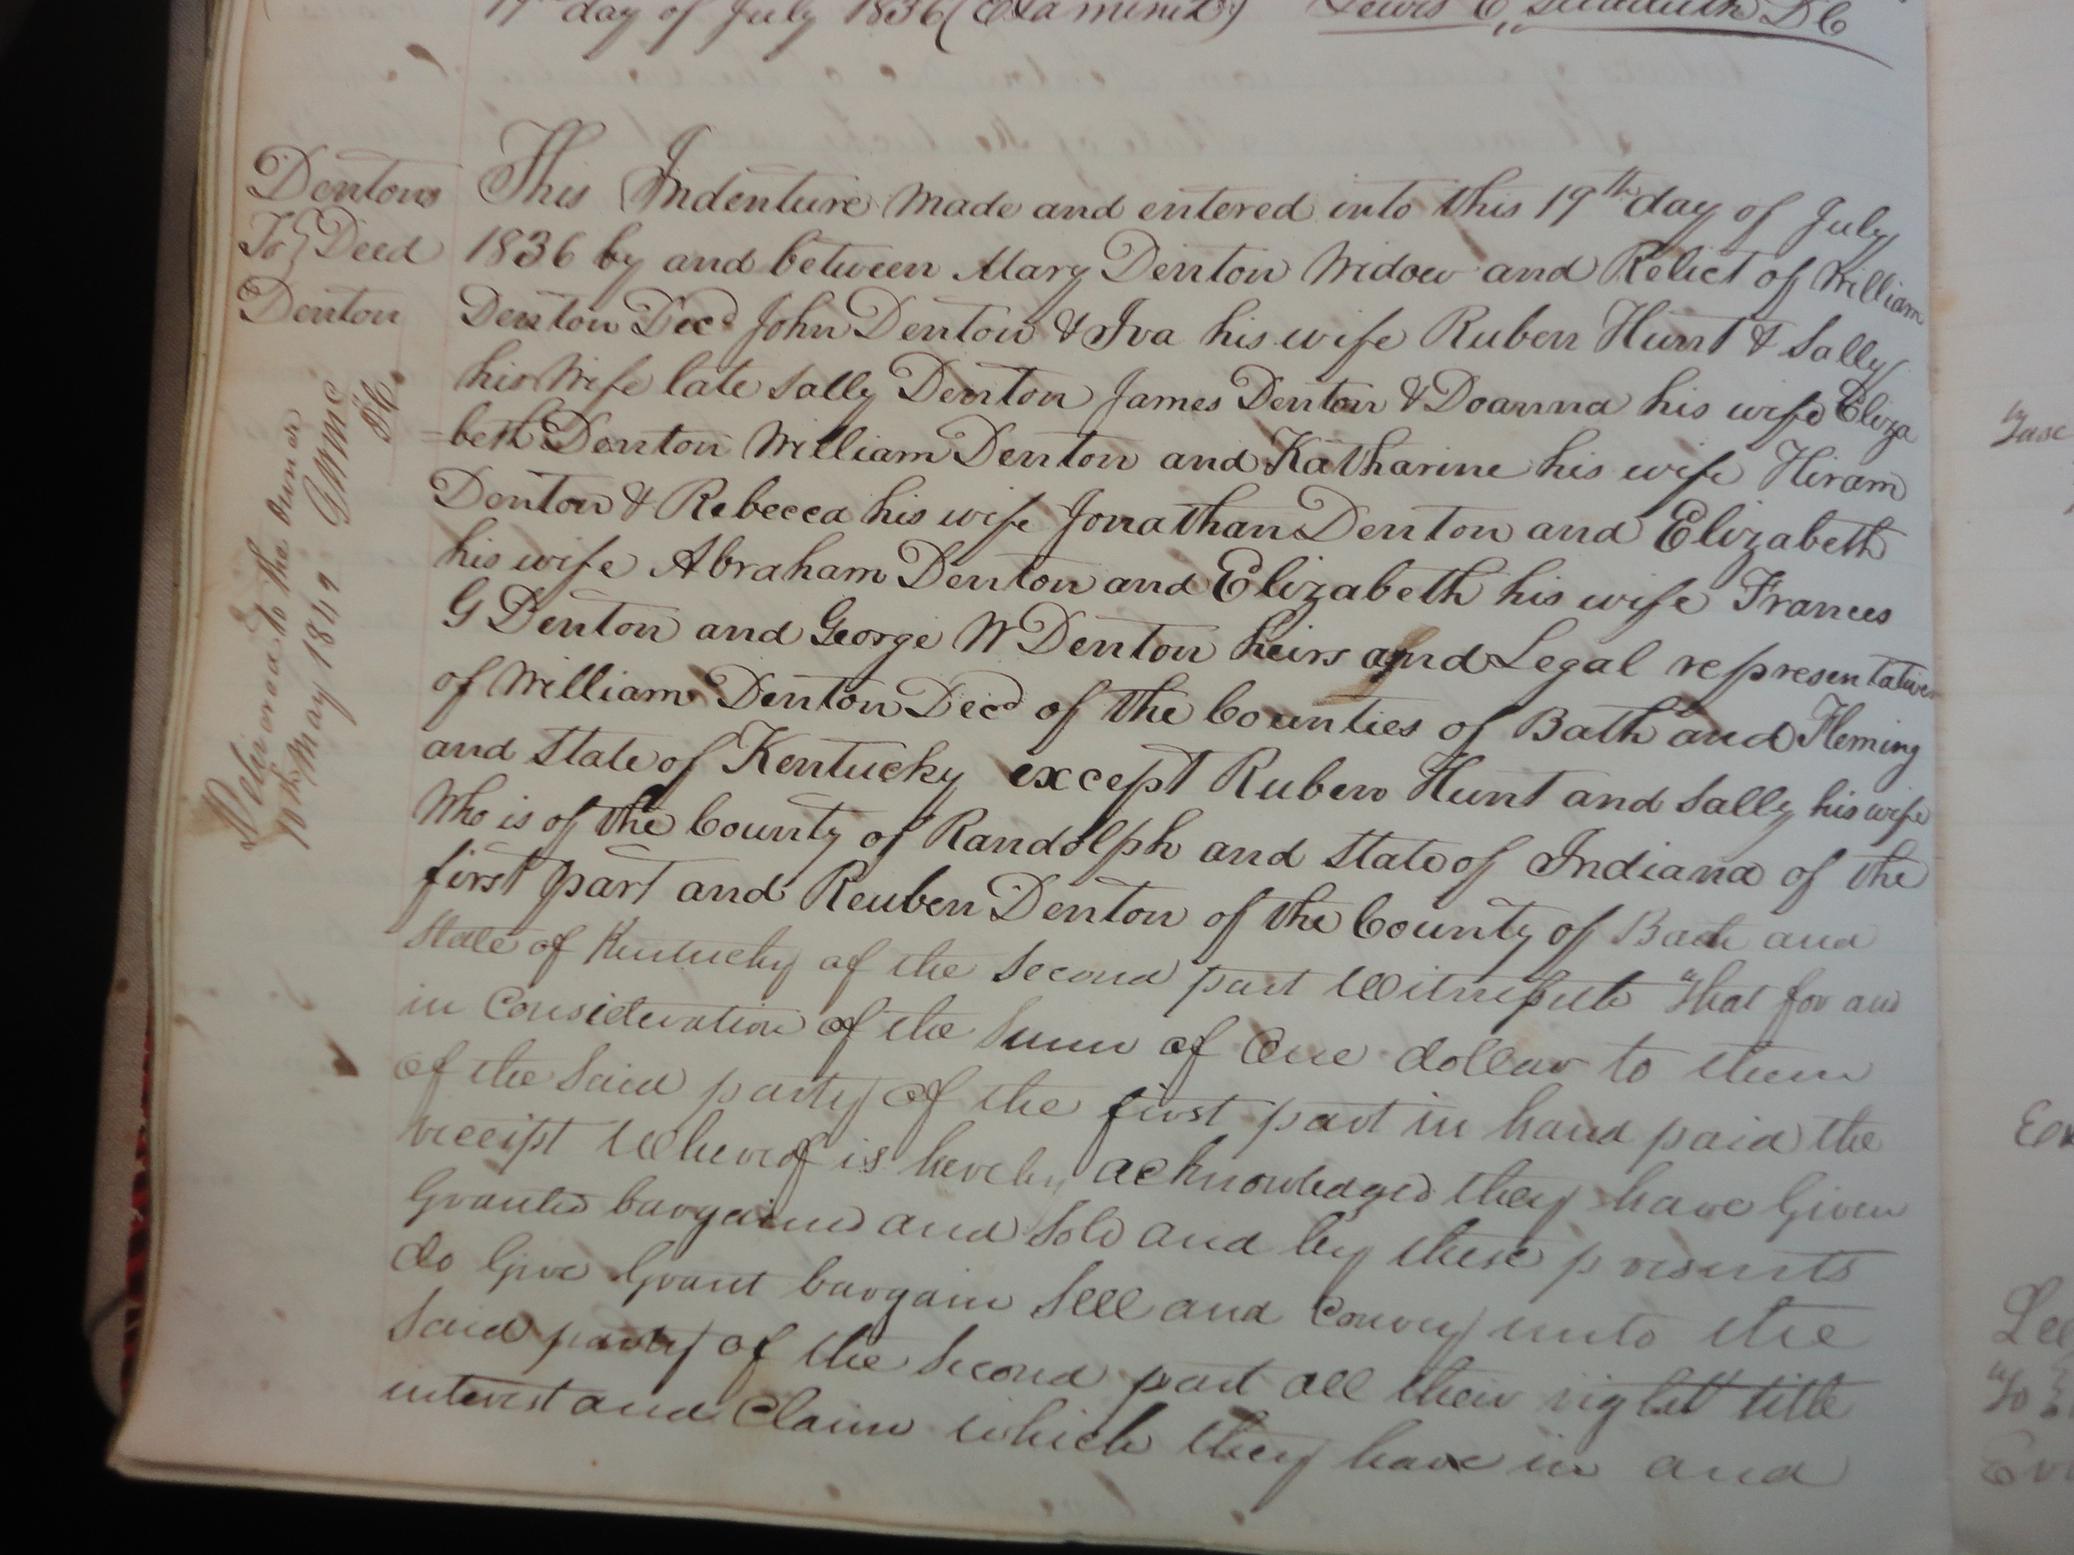 19th day of July 1836 (Examined) Lewis C. DC
Dentons
To } Deed
Denton
Delivered to the Owner
10th May 1842
DC
This Indenture Made and entered into this 19th day of July
1836 by and between Mary Denton Widow and Relict of William
Denton Decd John Denton & Iva his wife Ruben Hunt & Sally
his Wife late Sally Denton James Denton & Doanna his wife Eliza
=beth Denton William Denton and Katharine his wife Hiram
Denton & Rebecca his wife Jonathan Denton and Elizabeth
his wife Abraham Denton and Elizabeth his wife Frances
G Denton and George W Denton heirs and Legal representatives
of William Denton Decd of the Counties of Bath and Fleming
and State of Kentucky except Ruben Hunt and Sally his wife
Who is of the County of Randolph and State of Indiana of the
first part and Reuben Denton of the County of Bath and
State of Kentucky of the Second part Witnesseth "That for and
in Consideration of the Sum of One dollar to them
of the Said party of the first part in hand paid the
receipt Whereof is hereby acknowledged they have Given
Granted bargained and Sold and by these presents
do Give Grant bargain Sell and Convey unto the
Said party of the Second part all their right title
interest and Claim which they have in and